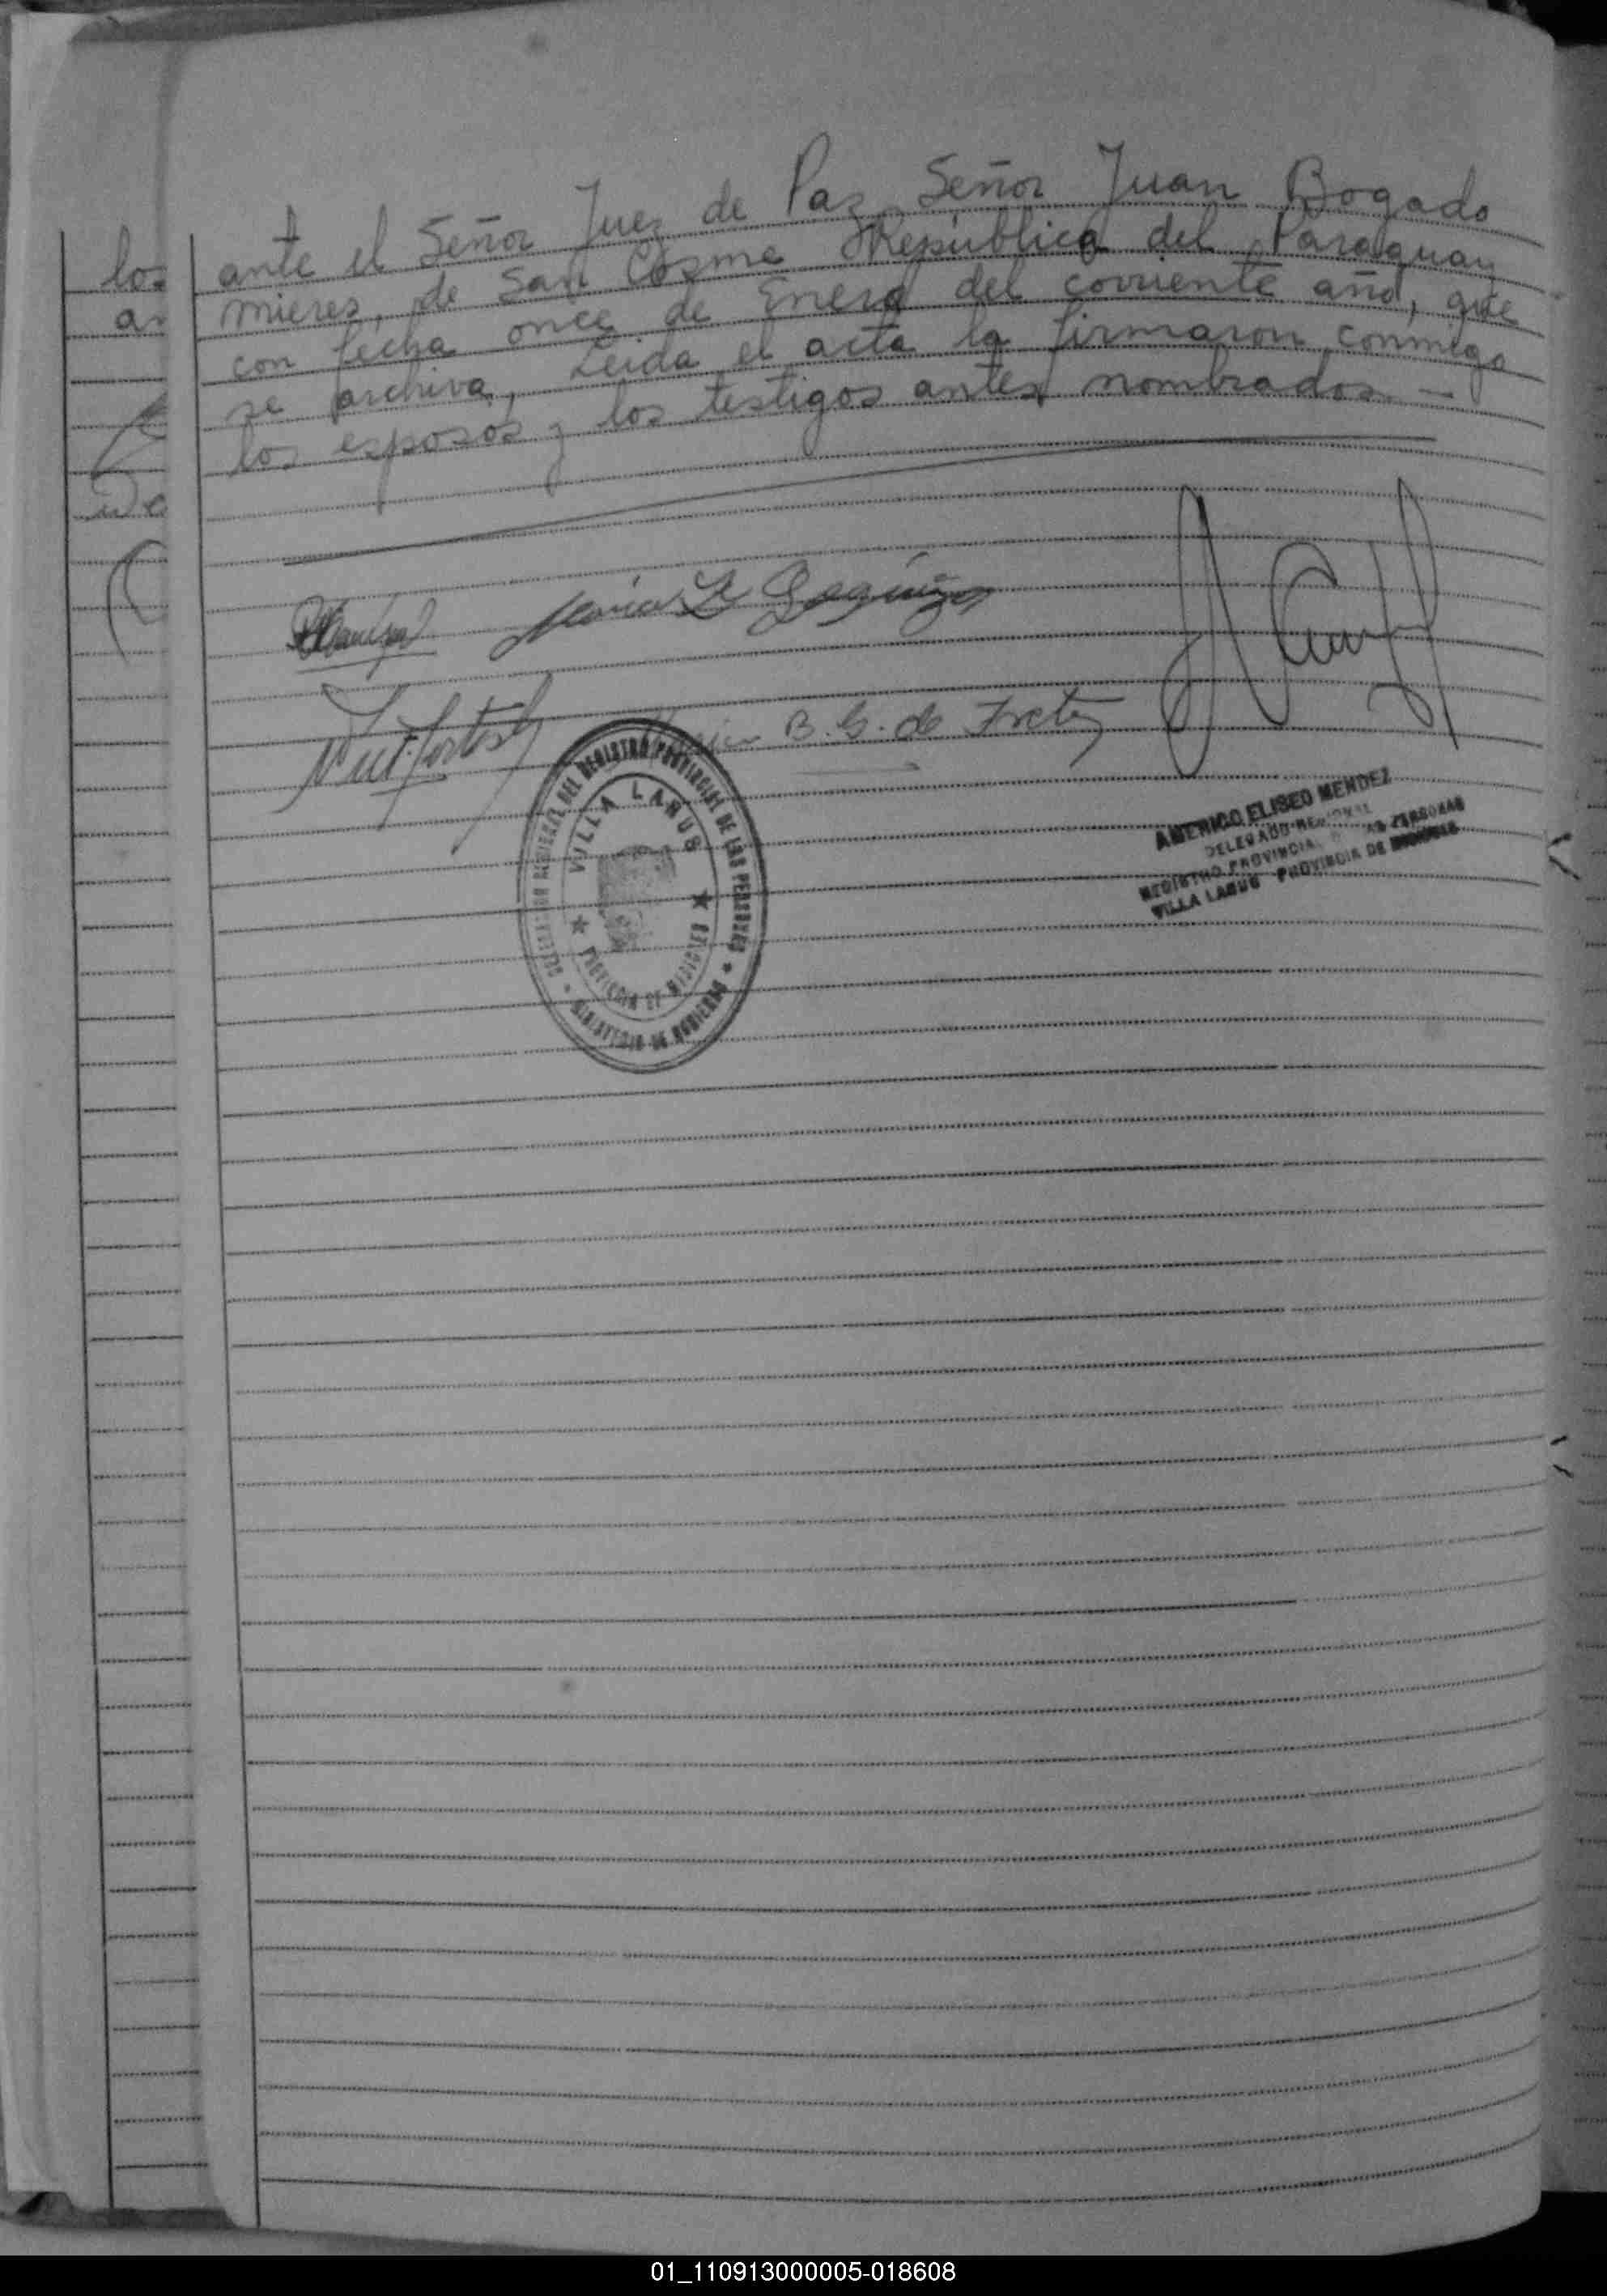 ante el Señor Juez de Paz Señor Juan Bogado
mieres, de San Cosme República del Paraguay
con fecha once de Enero del corriente año, que
se archiva, Leida el acta la firmaron conmigo
los esposos y los testigos antes nombrados. —
los
B. G. de Fretes
DEL REGISTRO PROVINCIAL DE LAS PERSONAS
MINISTERIO DE GOBIERNO
VILLA LANUS
PROVINCIA DE MISIONES
AMERICO ELISEO MENDEZ
DELEGADO REGIONAL
REGISTRO PROVINCIAL PERSONAS
VILLA LANUS PROVINCIA DE MISIONES
01_110913000005-018608